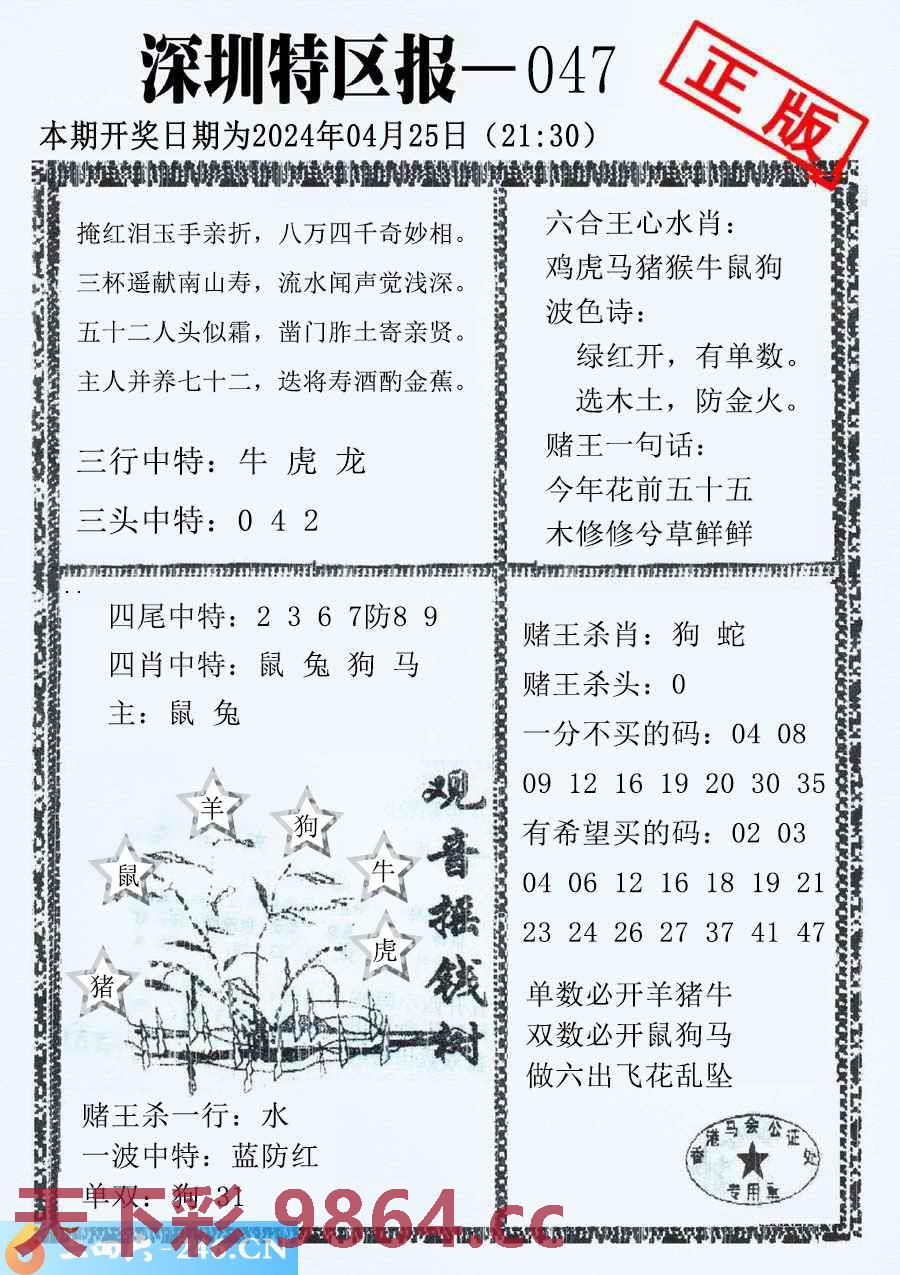 深圳特区报—047
正版
本期开奖日期为2024年04月25日（21:30）
掩红泪玉手亲折，八万四千奇妙相。
三杯遥献南山寿，流水闻声觉浅深。
五十二人头似霜，凿门胙土寄亲贤。
主人并养七十二，迭将寿酒酌金蕉。
三行中特：牛 虎 龙
三头中特：0 4 2
六合王心水肖：
鸡虎马猪猴牛鼠狗
波色诗：
绿红开，有单数。
选木土，防金火。
赌王一句话：
今年花前五十五
木修修兮草鲜鲜
四尾中特：2 3 6 7防8 9
四肖中特：鼠 兔 狗 马
主：鼠 兔
羊
狗
鼠
牛
虎
猪
观音摇钱树
赌王杀一行：水
一波中特：蓝防红
单双：狗 31
赌王杀肖：狗 蛇
赌王杀头：0
一分不买的码：04 08
09 12 16 19 20 30 35
有希望买的码：02 03
04 06 12 16 18 19 21
23 24 26 27 37 41 47
单数必开羊猪牛
双数必开鼠狗马
做六出飞花乱坠
香港马会公证处
专用章
天下彩 9864.cc